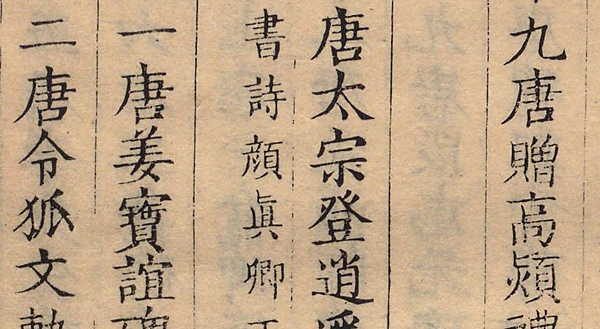 九唐贈高熲禮
唐太宗登逍遙
書詩顏眞卿
一唐姜寶誼碑
二唐令狐文